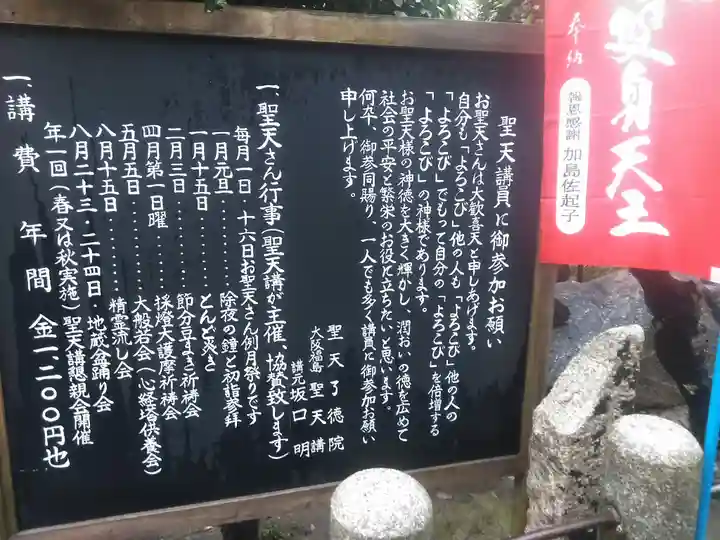 聖天講員に御参加お願い
お聖天さんは大歓喜天と申しあげます。
自分も「よろこび」他の人も「よろこび」他の人の
「よろこび」でもって自分の「よろこび」を倍増する
「よろこび」の神様であります。
お聖天様の神徳を大きく輝かし、潤おいの徳を広めて
社会の平安と繁栄のお役に立ちたいと思います。
何卒、御参同賜り、一人でも多く講員に御参加お願い
申し上げます。
聖天了徳院
大阪福島聖天講
講元坂口明
一、聖天さん行事(聖天講が主催、協賛致します)
毎月一日・十六日お聖天さん例月祭りです
一月元旦………除夜の鐘と初詣参拝
一月十五日………とんど炎き
二月三日………節分豆まき祈祷会
四月第一日曜………採燈大護摩祈祷会
五月五日………大般若会(心経塔供養会)
八月十五日………精霊流し会
八月二十三・二十四日 地蔵盆踊り会
年一回(春又は秋実施)聖天講懇親会開催
一、講費 年間 金一、二〇〇円也
身天王
奉納
報恩感謝 加島佐起子